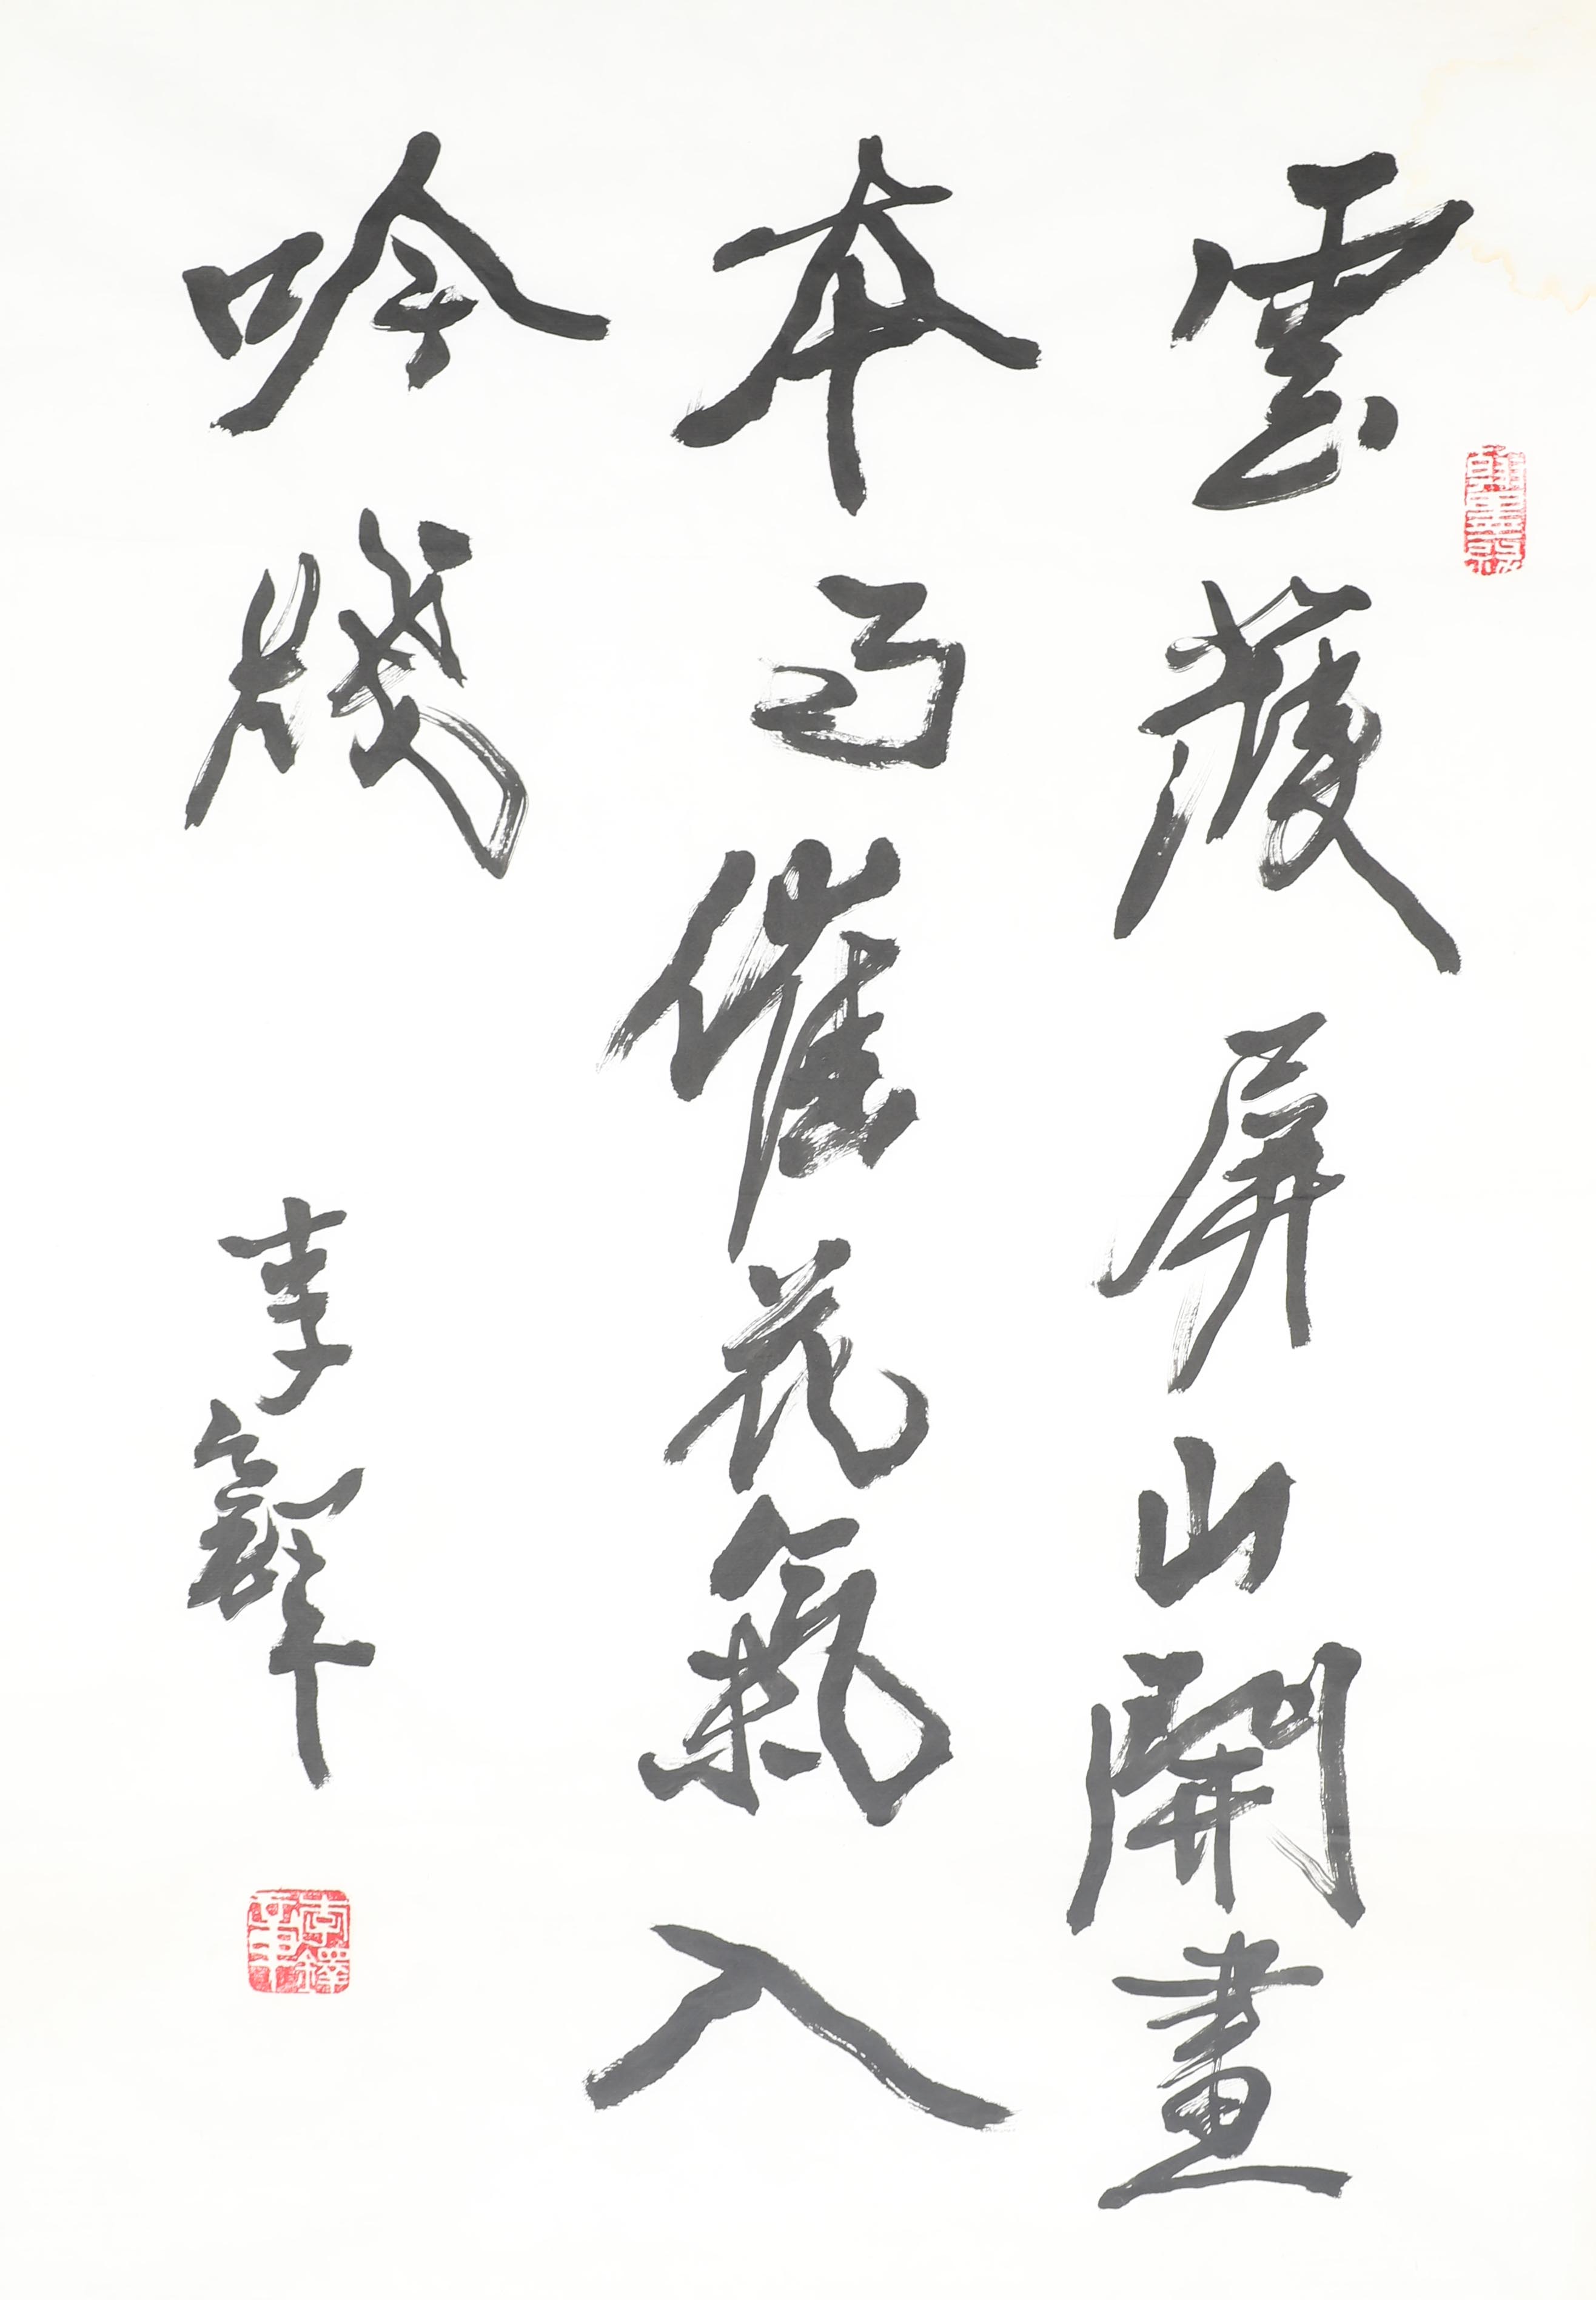 雲護屏山開畫
本雨催花氣入
吟牋
李鐸
李鐸